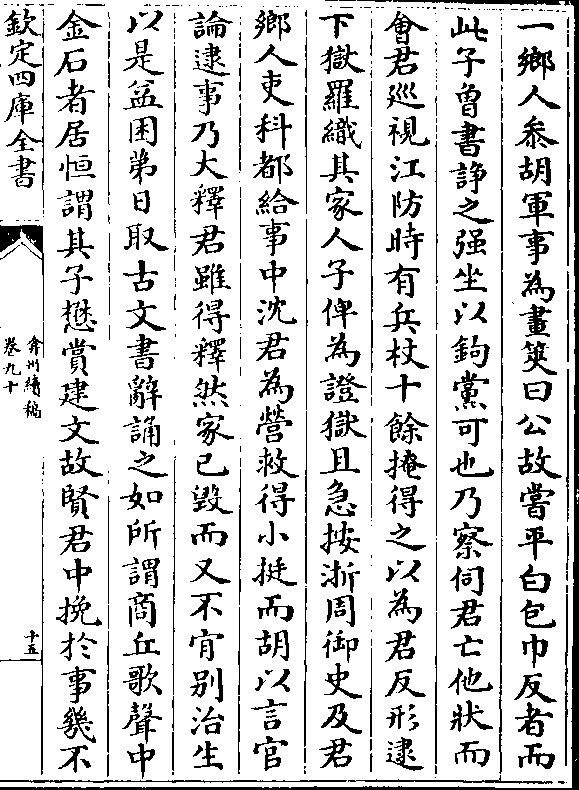 一鄉人叅胡軍事為畫筴曰公故嘗平白包巾反者而
此子曾書諍之强坐以鉤黨可也乃察伺君亡他狀而
會君廵視江防時有兵杖十餘掩得之以為君反形逮
下獄羅織其家人子俾為證獄且急按浙周御史及君
鄉人吏科都給事中沈君為營救得小挺而胡以言官
論逮事乃大釋君雖得釋然家已毀而又不肎别治生
以是益困弟日取古文書辭誦之如所謂商丘歌聲中
金石者居恒謂其子懋賞建文故賢君中挽於事幾不
欽定四庫全書
弇州續稿
卷九十
十五